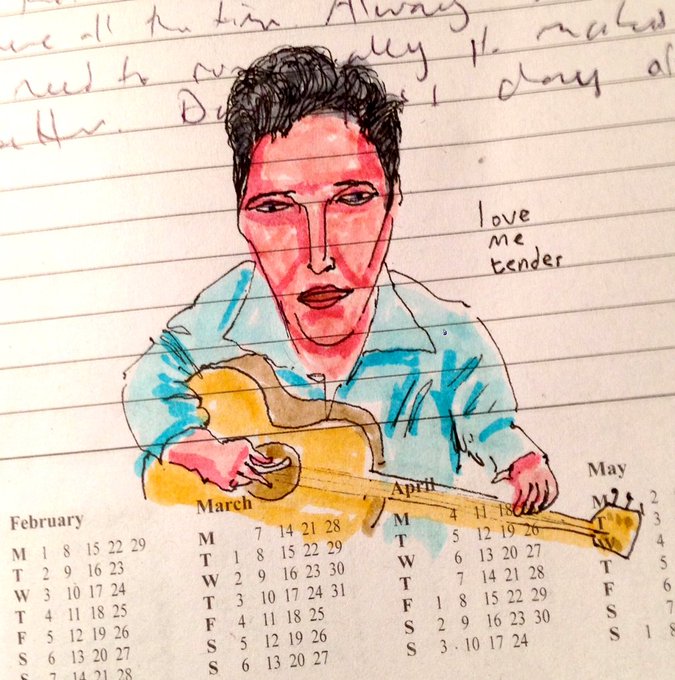 all the time. Always
need to
day of
love
me
tender
February
M 1 8 15 22 29
T 2 9 16 23
W 3 10 17 24
T 4 11 18 25
F 5 12 19 26
S 6 13 20 27
S 7 14 21 28
March
M 7 14 21 28
T 1 8 15 22 29
W 2 9 16 23 30
T 3 10 17 24 31
F 4 11 18 25
S 5 12 19 26
S 6 13 20 27
April
M 4 11 18
T 5 12 19 26
W 6 13 20 27
T 7 14 21 28
F 1 8 15 22 29
S 2 9 16 23 30
S 3 10 17 24
May
M 2
T 3
W 4
T 5
F 6
S 7
S 1 8